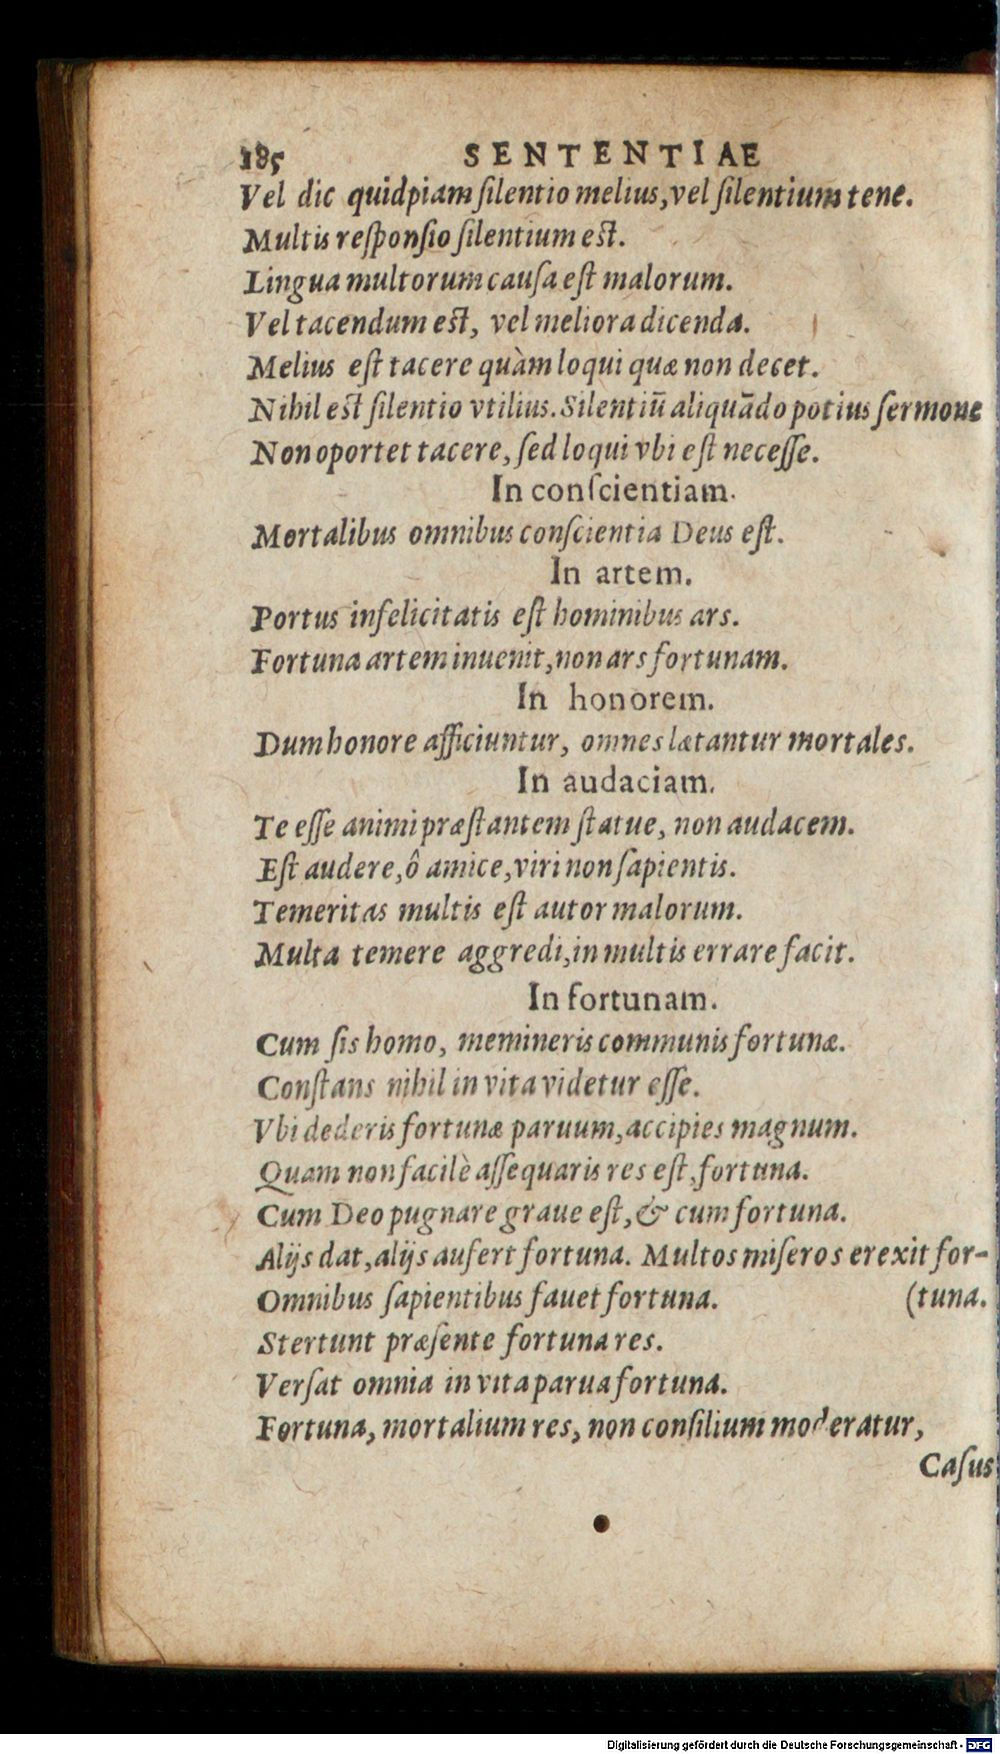 185 SENTENTIAE
Vel dic quidpiam ſilentio melius, vel ſilentium tene.
Multis reſponſio ſilentium eſt.
Lingua multorum cauſa eſt malorum.
Vel tacendum eſt, vel meliora dicenda.
Melius eſt tacere quàm loqui quæ non decet.
Nihil eſt ſilentio vtilius. Silentiū aliquādo potius ſermone
Non oportet tacere, ſed loqui vbi eſt neceſſe.
In conſcientiam.
Mortalibus omnibus conſcientia Deus eſt.
In artem.
Portus infelicitatis eſt hominibus ars.
Fortuna artem inuenit, non ars fortunam.
In honorem.
Dum honore afficiuntur, omnes lætantur mortales.
In audaciam.
Te eſſe animi præſtantem ſtatue, non audacem.
Eſt audere, ô amice, viri non ſapientis.
Temeritas multis eſt autor malorum.
Multa temere aggredi, in multis errare facit.
In fortunam.
Cum ſis homo, memineris communis fortunæ.
Conſtans nihil in vita videtur eſſe.
Vbi dederis fortunæ paruum, accipies magnum.
Quam non facilè aſſequaris res eſt, fortuna.
Cum Deo pugnare graue eſt, & cum fortuna.
Alijs dat, alijs aufert fortuna. Multos miſeros erexit for-
Omnibus ſapientibus fauet fortuna. (tuna.
Stertunt præſente fortuna res.
Verſat omnia in vita parua fortuna.
Fortuna, mortalium res, non conſilium moderatur,
Caſus
Digitalisierung gefördert durch die Deutsche Forschungsgemeinschaft - DFG